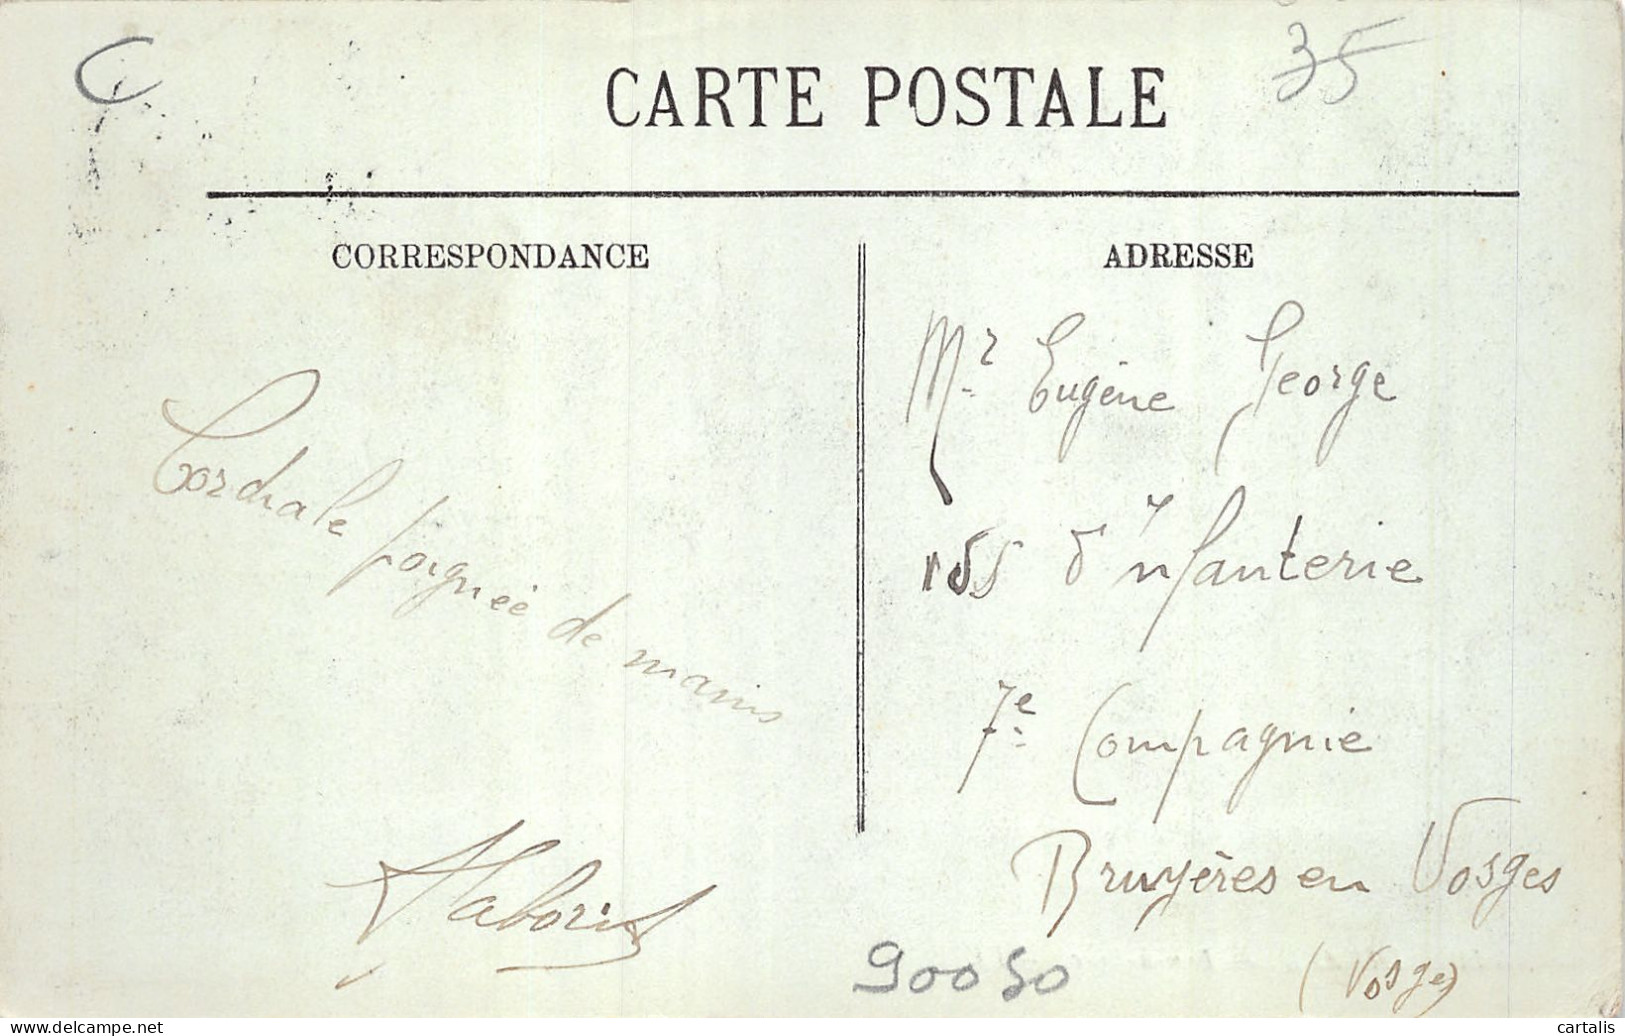 35
CARTE POSTALE
CORRESPONDANCE
Cordiale poignée de mains
ADRESSE
Mr Eugène George
158 d'infanterie
7e Compagnie
Bruyères en Vosges
(Vosges)
90050
delcampe.net
cartalis